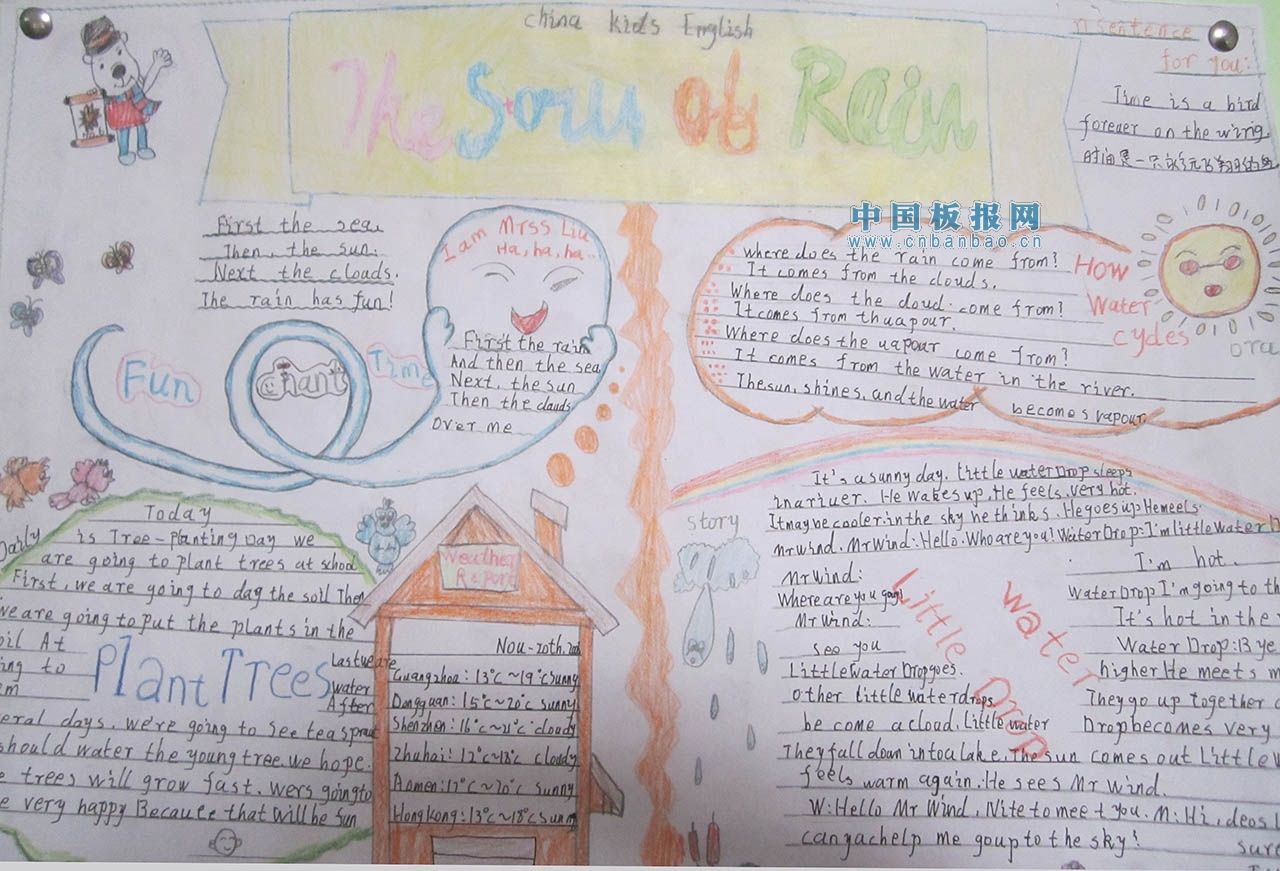 china kids English
The Soru of Rain
n sentence
for you:
Time is a bird
forever on the wing
时间是一只永远飞翔的鸟
中国板报网
www.cnbanbao.cn
First the sea.
Then, the sun.
Next the cloads.
The rain has fun!
I am Mrss Liu
Ha, ha, ha..
First the rain
And then the sea
Next, the sun
Then the clauds
Over me
Fun
Chant
Time
where does the rain come from?
It comes from the clouds.
Where does the cloud come from?
It comes from thuapour.
Where does the uapour come from?
It comes from the water in the river.
The sun, shines, and the water becomes vapour.
How
Water
cydes
ora
Today
Daily is Tree-planting Day we
are going to plant trees at school
First, we are going to dag the soil Then
we are going to put the plants in the
oil At
ing to
em
Plant Trees
Last we are
water
After
eral days. we're going to see tea sprout
should water the young tree. we hope.
e trees will grow fast. wers going to
e very happy Becaute that will be sun
Weather
Report
Nou-20th.
Guangzhoa: 13°c~19°c sunny
Dongguan: 15°c~20°c sunny
Shenzhen: 16°c~21°c cloudy
Zhuhai: 12°c~18°c cloudy
Aomen: 17°c~20°c sunny
Hongkong: 13°c~18°c sunny
story
It's a sunny day. Little water Drop sleeps
in a riuer. He wakes up. He feels very hot.
It may be cooler in the sky he thinks. He goes up He meels
Mr wind. Mr Wind: Hello. Who are you! Water Drop: I'm little water D
Mr wind:
Where are you gog!
Mr wind:
see you
Little Water Drop goes.
other little waterdrops
be come a cloud. Little water
I'm hot.
Water Drop I'm going to th
It's hot in the r
Water Drop: B ye
higher He meets m
They go up together a
Drop becomes very
Little
Water
Drop
They fall down into a lake. The sun comes out Little W
feels warm again. He sees Mr Wind.
W: Hello Mr Wind. Nite to meet you. M: Hi, deos l
can ya help me go up to the sky!
sure